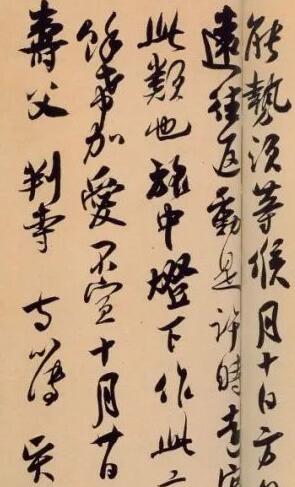 能熱須等候月十日方
遠往返動是許時走
此類也旅中燈下作此
餘希加愛不宣十月廿日
壽父判寺